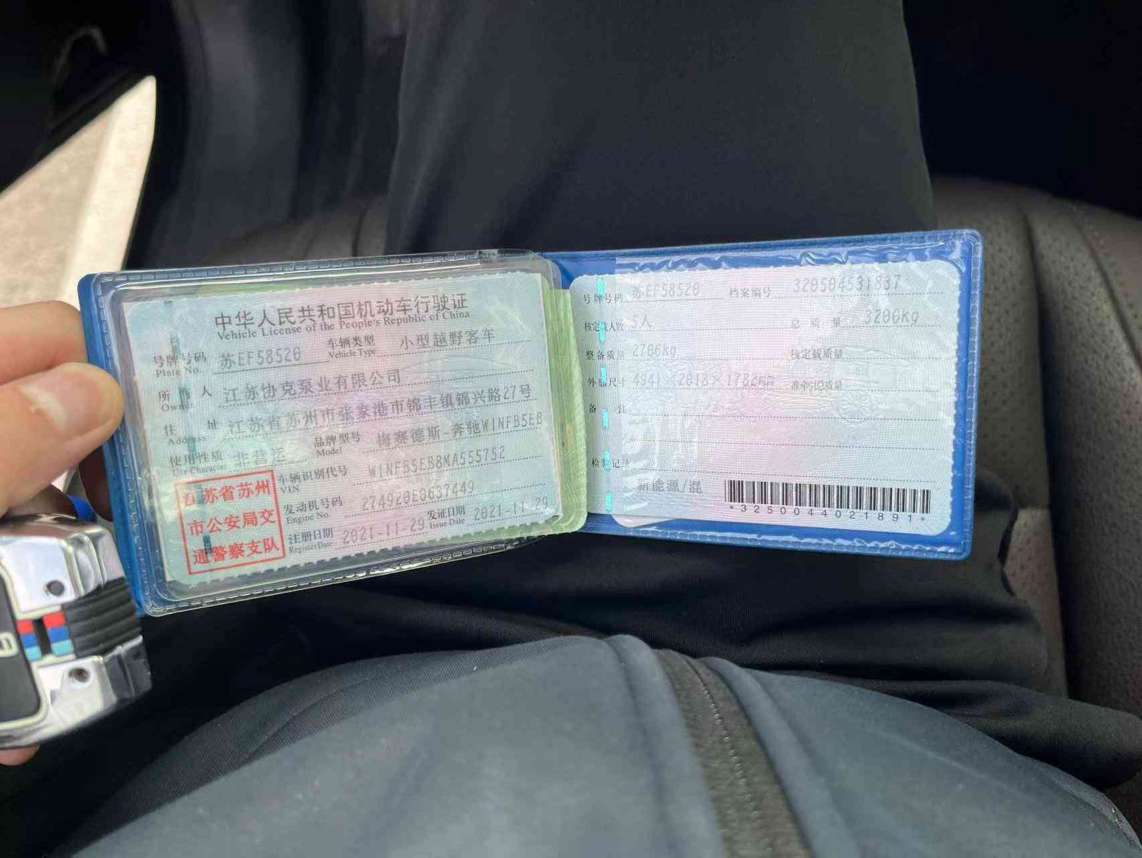 中华人民共和国机动车行驶证
Vehicle License of the People's Republic of China
号牌号码 苏EF58520 车辆类型 小型越野客车
Plate No. Vehicle Type
所 人 江苏协克泵业有限公司
Owner
住 址 江苏省苏州市张家港市锦丰镇锦兴路27号
Address
使用性质 非营运 品牌型号 梅赛德斯-奔驰W1NFB5EB
Use Character Model
车辆识别代号 W1NFB5EB8KA555752
VIN
发动机号码 27492080637449
Engine No.
注册日期 2021-11-29 发证日期 2021-11-29
Register Date Issue Date
江苏省苏州
市公安局交
通警察支队
号牌号码 苏EF58520 档案编号 320504531837
核定载人数 5人 总 质 量 3200kg
整备质量 2706kg 核定载质量
外廓尺寸 4941×2018×1782mm 准牵引总质量
备 注
检验记录
新能源/混
*3250044021891*